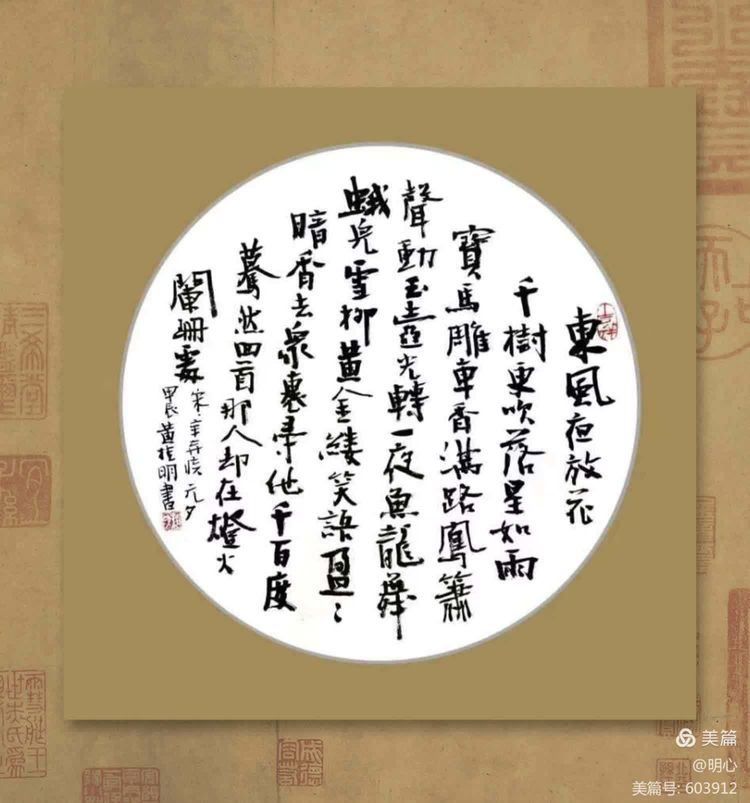 東風夜放花
千樹更吹落星如雨
寶馬雕車香滿路鳳簫
聲動玉壺光轉一夜魚龍舞
蛾兒雪柳黃金縷笑語盈〻
暗香去衆裏尋他千百度
驀然回首那人却在燈火
闌珊處
宋·辛弃疾元夕
甲辰黄桂明書
美篇
@明心
美篇号: 603912